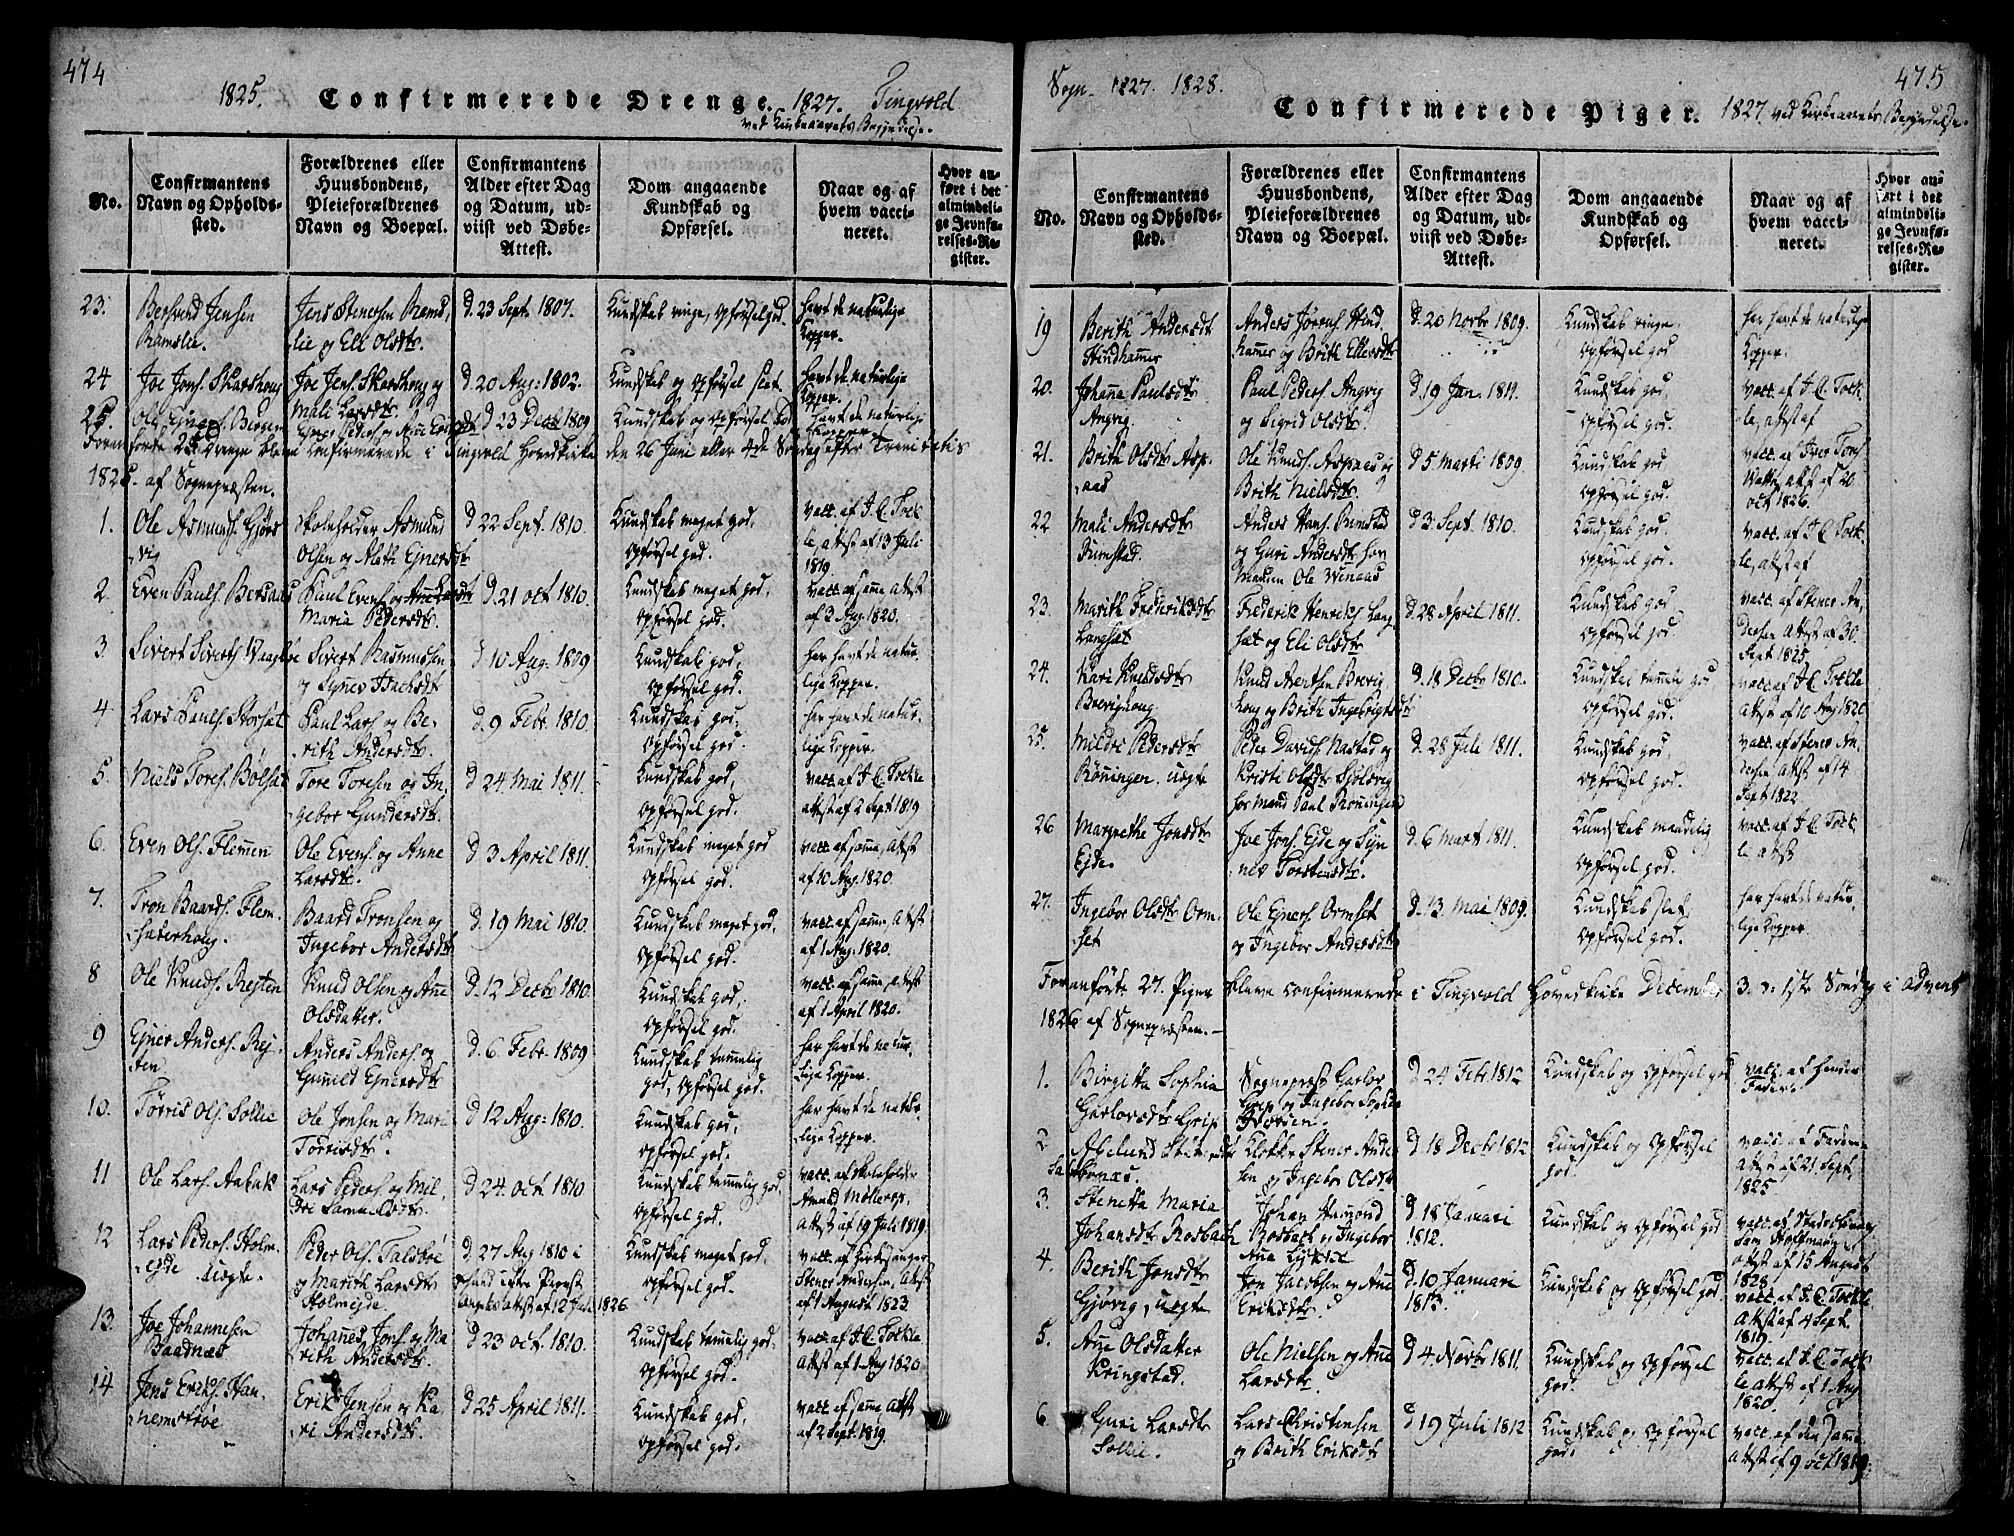 474
1825. Confirmerede Drenge. 1827. Tingvold
ved Kirkeaarets Begyndelse.
No.
Confirmantens
Navn og Opholds-
sted.
Forældrenes eller
Huusbondens,
Pleieforældrenes
Navn og Boepæl.
Confirmantens
Alder efter Dag
og Datum, ud-
viist ved Døbe-
Attest.
Dom angaaende
Kundskab og
Opførsel.
Naar og af
hvem vacci-
neret.
Hvor an-
ført i det
almindeli-
ge Jevnfø-
relses-Re-
gister.
23. Jensen
Jens Stenersen
og Eli Olsdtr.
d. 23 Sept. 1807.
Kundskab ringe, Opførsel god.
havt de naturlige
Kopper.
24 Joe Jons. Skarshoug
Joe Jens. Skarshoug og
Mali Larsdtr.
d. 20 Aug: 1802.
Kundskab og Opførsel slet.
havt de naturlige
Kopper.
25. Ole Ejners. Bergem
d. 23 Decbr 1809
Kundskab og Opførsel god
havt de naturlige
Kopper
Foranførte 25 Drenge bleve confirmerede i Tingvold Hovedkirke den 26 Juni eller 4de Søndag efter Trinitatis
1825. af Sognepræsten.
1. Ole Asmunds. Gjørs
vig
Skoleholder Asmund
Olsen og Ejnersdtr
d. 22 Sept. 1810.
Kundskab meget god,
Opførsel god.
vacc. af J. C. Tock
le, attest af 13 Juli
1819
2. Even Pauls.
Paul Evens. og
Maria Pedersdtr.
d. 21 oct 1810.
Kundskab meget god,
Opførsel god.
vacc. af samme Attest
af 3 Aug. 1820.
3. Sivert Siverts. Vaagbøe
Sivert Rasmussen
og Synev Isachsdt
d. 10 Aug: 1809
Kundskab god,
Opførsel god.
har havt de natur,
lige Kopper.
4 Lars Pauls. Storset
Paul Lars. og Be-
rith Andersdtr.
d. 9 Febr. 1810.
Kundskab god,
Opførsel god.
har havt de natur,
lige Kopper.
5. Niels Tores. Bølset
Tore Toresen og In,
gebor Gundersdtr.
d. 24 Mai 1811.
Kundskab god,
Opførsel god.
vacc. af J. C. Tockle
attest af 2 Sept 1819
6. Even Ols. Flemen
Ole Evens. og Anne
Larsdtr.
d. 3 April 1811.
Kundskab meget god
Opførsel god.
vacc. af samme, attest
af 10 Aug. 1820.
7. Tron Baards. Flem,
sæterhoug.
Baard Tronsen og
Ingebor Andersdtr
d. 19 Mai 1810.
Kundskab meget god,
Opførsel god.
vacc. af samme, Attest
af 1 Aug. 1820.
8 Ole Knuds. Rejten
Knud Olsen og Ane
Olsdatter.
d. 12 Decbr 1810.
Kundskab god,
Opførsel god.
vacc. af samme, attest
af 1 April 1820.
9 Ejner Anders. Rej,
ten
Anders Anders. og
Gunild Ejnersdtr
d. 6. Febr. 1809
Kundskab temmelig
god, Opførsel god.
har havt de natur,
lige Kopper.
10. Tørris Ols. Sollie
Ole Jonsen og Mari
Torrisdtr.
d. 12 Aug: 1810.
Kundskab god,
Opførsel god.
har havt de natur
lige Kopper.
11 Ole Lars. Aabak
Lars Peders. og Mil,
dri Samuelsdtr.
d. 24. oct 1810
Kundskab temmelig god,
Opførsel god.
vacc. af Skoleholder
Amund Møllerop,
Attest af 19 Juli 1819.
12 Lars Peders. Holm,
ejde uægte.
Peder Ols. Talsbøe
og Marith Larsdtr
Holmejde.
d. 27 Aug 1810
Attest af 12 1826
Kundskab meget god,
Opførsel god.
vacc. af Kirkesanger
Stener Andersen, attest
af 1 August 1823.
13. Joe Johannesen
Baadnæs
Johannes Jons. og Ma
rith Andersdtr.
d. 23 oct. 1810.
Kundskab temmelig god,
Opførsel god.
vacc. af J. C. Tockle
Attest af 1 Aug 1820
14 Jens Eriks. Han-
nemstrøe
Erik Jensen og Ka,
ri Andersdtr.
d. 25 April 1811.
Kundskab god,
Opførsel god.
vacc. af samme, attest
af 2 Sept. 1819.
Sogn. 1827. 1828. 475
Confirmerede Piger. 1827. ved Kirkeaarets Begyndelse.
No.
Confirmantens
Navn og Opholds-
sted.
Forældrenes eller
Huusbondens,
Pleieforældrenes
Navn og Boepæl.
Confirmantens
Alder efter Dag
og Datum, ud-
viist ved Døbe-
Attest.
Dom angaaende
Kundskab og
Opførsel.
Naar og af
hvem vacci-
neret.
Hvor an-
ført i det
almindeli-
ge Jevnfø-
relses-Re-
gister.
19 Berith Andersdt
Hindhammer
Anders Jørens. Hind,
hammer og Brith Ellersdtr
d. 20 Novbr 1809.
Kundskab ringe,
Opførsel god
har havt de naturlige
Kopper.
20. Johanna Paulsdtr
Angvig.
Paul Peders. Angvig
og Sigrid Olsdtr.
d. 19 Jan. 1811.
Kundskab god,
Opførsel god.
vacc. af J. C. Tock
le, attest af
21. Brith Olsdtr Asp,
aas
Ole Knuds. Aspaas og
Brith Nielsdtr.
d. 5. Marti 1809.
Kundskab god
Opførsel god.
vacc. af Iver Tors.
attest af 20
oct 1826.
22 Mali Andersdtr
Rimstad.
Anders Hans. Rimstad
og Guri Andersdtr her
Manden Ole
d. 3. Sept. 1810.
Kundskab god,
Opførsel god.
vacc. af J. C. Tock
le, attest af
23. Marith Frederiksdtr
Langsæt
Frederik Henriks. Lang
sæt og Eli Olsdtr
d. 28 April 1811.
Kundskab god
Opførsel god.
vacc. af Stener An,
dersen attest af 30
Sept 1825.
24. Kari Knudsdtr
Brevighoug.
Knud Brevig,
houg og Brith Ingebrigtsdtr
d. 18 Decbr 1810.
Kundskab temmelig god,
Opførsel god.
vacc. af J. C. Tockle
Attest af 10 Aug 1820
25. Mildri Pedersdtr
Rønningen. uægte
Peder Davids. Nastad og
Kristi Olsdtr
Mand Paul Rønningen
d. 28 Juli 1811.
Kundskab god,
Opførsel god.
vacc. af Stener An,
dersen Attest af 14
Sept 1822
26 Margrethe Jonsdtr
Ejde.
Joe Jons. Ejde og Syn
nev Torstensdtr.
d. 6 Mart 1811.
Kundskab maadelig
Opførsel god.
vacc. af J. C. Tock
le attest
27. Ingebor Olsdtr Orm,
set
Ole Ejners. Ormset
og Ingebor Andersdtr
d. 13. Mai 1809.
Kundskab slet,
Opførsel god.
har havt de natur,
lige Kopper.
Foranførte 27. Piger bleve confirmerede i Tingvold Hovedkirke December 3. : 1ste Søndag i Advent
1826 af Sognepræsten.
1. Birgitta Sophia
Garlovsdtr Grip
Sognepræst Garlov
Grip og Ingebor Sophia
Iversen.
d. 24 Febr. 1812
Kundskab og Opførsel god
vacc. af hendes
Fader.
2 Stenersdtr
Klokker Stener Ander
sen og Ingebor Olsdtr
d. 18 Decbr 1812
Kundskab og Opførsel
god.
vacc. af Faderen
attest af 21. Sept,
1825
3. Stenetta Maria
Johansdt Rosbach
Johan Hamond
Rosbach og Ingebor
Ana
d. 18 Januari
1812.
Kundskab og Opførsel god
vacc. af
Hoffmann,
attest af 15 August
1828
4. Berith Jonsdtr
Gjørvig, uægte
Jon Jacobsen og Ane
Eriksdtr.
d. 10 Januari
1813.
Kundskab og Opførsel god
vacc. af J. C. Tockle
Attest af 4 Sept.
1819.
5. Ane Olsdatter
Kringstad.
Ole Nielsen og Ane
Larsdtr.
d. 4. Novbr 1811.
Kundskab og Opførsel
god.
vacc. af J. C. Tock
le attest af 1 Aug
1820.
6. Guri Larsdtr
Sollie.
Lars Christensen
og Brith Eriksdtr
d. 19 Juli 1812
Kundskab og Opførsel
god.
vacc. af den samme
Attest af 9 oct 1819.